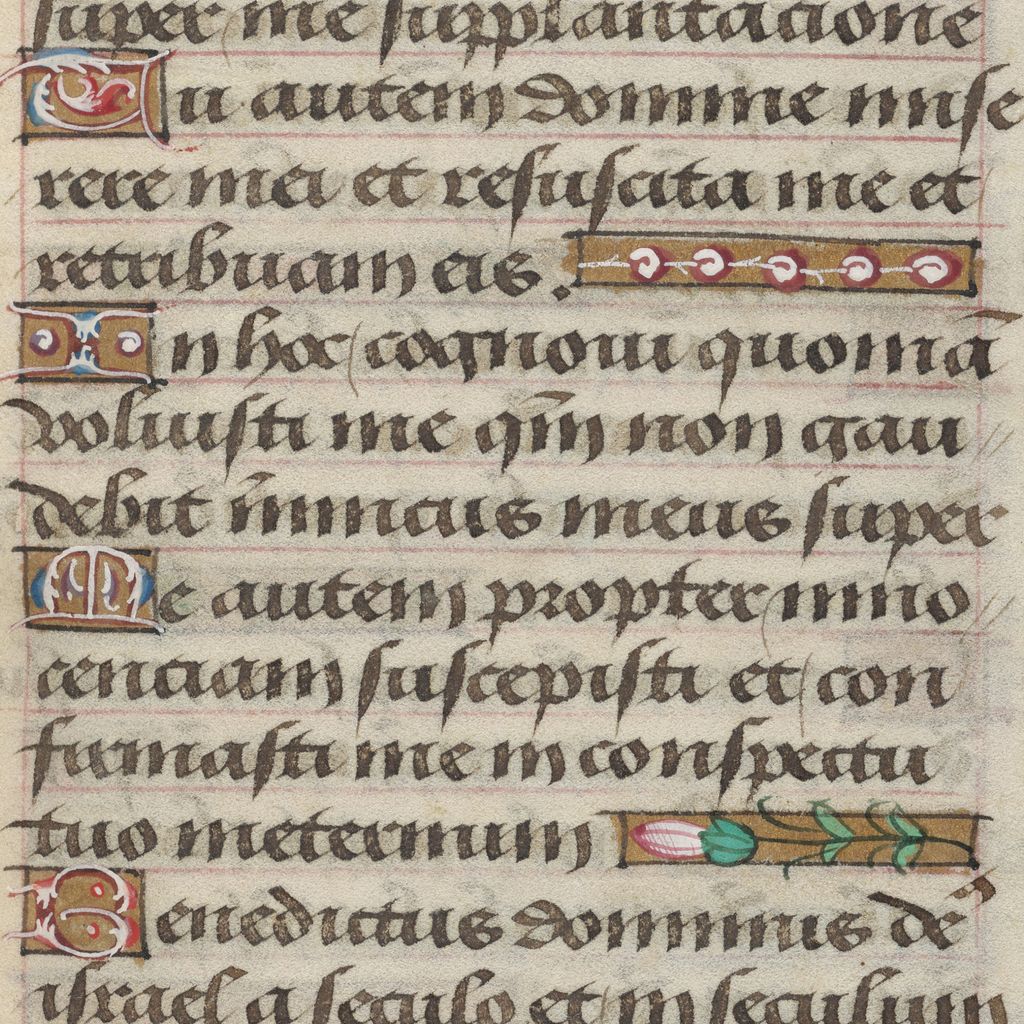 super me supplantacione
Tu autem domine mise
rere mei et resuscita me et
retribuam eis .
In hoc cognoui quoniā
voluisti me qm̄ non gau
debit inīmicus meus super
Me autem propter inno
cenciam suscepisti et con
firmasti me in conspectu
tuo ineternum
Benedictus dominus deˢ
israel a seculo et in seculum